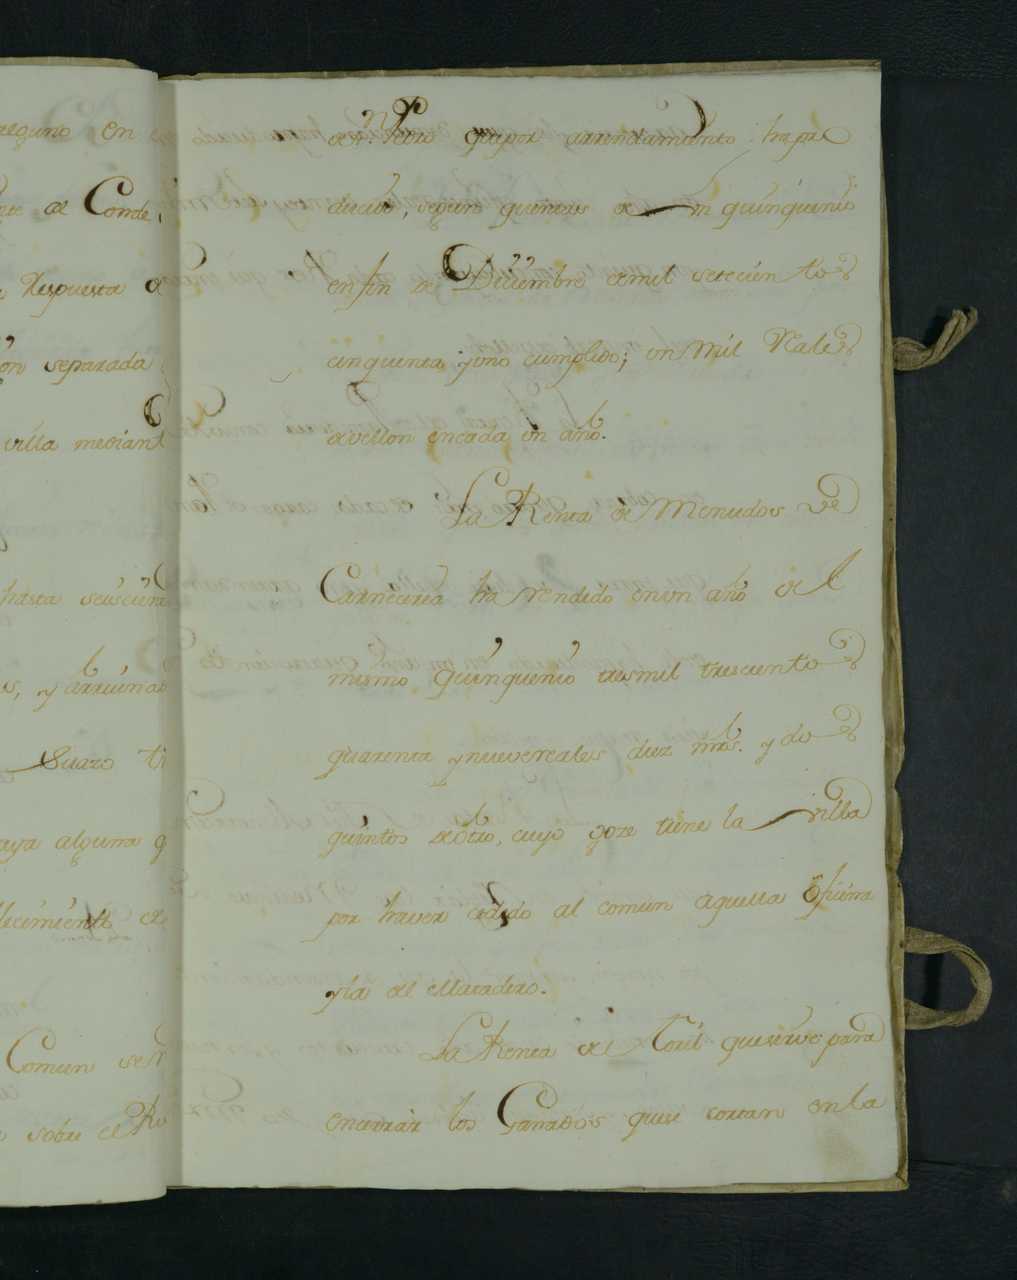 reguno en
nte al Conde,
Respuesta de
on separada
villa mediant
hasta seiscien
s, y arruinad
Suazo ti
aya alguna q
llecimiento de
Comun se
sobre el Ro
Sn. Pedro que por arrendamiento ha pro
ducido, segun quentas de un quinquenio
en fin de Diziembre de mil setecientos
cinquenta y uno cumplido; un mil Reales
de vellon en cada un año.
La Renta de Menudos de
Carneceria ha rendido en un año del
mismo quinquenio tres mil trescientos
quarenta y nueve reales diez mrs. y dos
quintos de otro, cuyo goze tiene la villa
por haver cedido al comun aquella oficina
y la del Matadero.
La Renta del Toril que sirve para
encerrar los Ganados que se cortan en la